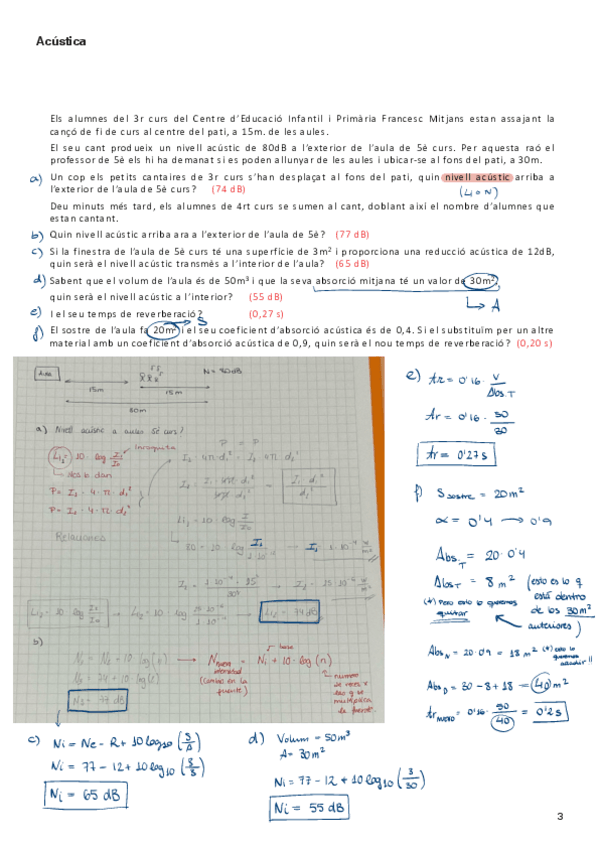 Acústica
Els alumnes del 3r curs del Centre d'Educació Infantil i Primària Francesc Mitjans estan assajant la
cançó de fi de curs al centre del pati, a 15m. de les aules.
El seu cant produeix un nivell acústic de 80dB a l'exterior de l'aula de 5è curs. Per aquesta raó el
professor de 5è els hi ha demanat si es poden allunyar de les aules i ubicar-se al fons del pati, a 30m.
a) Un cop els petits cantaires de 3r curs s'han desplaçat al fons del pati, quin nivell acústic arriba a
l'exterior de l'aula de 5è curs? (74 dB)
(L o N)
Deu minuts més tard, els alumnes de 4rt curs se sumen al cant, doblant així el nombre d'alumnes que
estan cantant.
b) Quin nivell acústic arriba ara a l'exterior de l'aula de 5è? (77 dB)
c) Si la finestra de l'aula de 5è curs té una superfície de 3m² i proporciona una reducció acústica de 12dB,
quin serà el nivell acústic transmés a l'interior de l'aula? (65 dB)
d) Sabent que el volum de l'aula és de 50m³ i que la seva absorció mitjana té un valor de 30m²,
quin serà el nivell acústic a l'interior? (55 dB)
A
e) I el seu temps de reverberació? (0,27 s)
S
f) El sostre de l'aula fa 20m² i el seu coeficient d'absorció acústica és de 0,4. Si el substituïm per un altre
material amb un coeficient d'absorció acústica de 0,9, quin serà el nou temps de reverberació? (0,20 s)
Aula
N = 80dB
15m
15m
30m
a) Nivell acústic a aules 5è curs!
Incògnita
P = P
P = I₁ · 4 · π · d₁²
P = I₂ · 4 · π · d₂²
Relaciones
LI₂ = 74 dB
b)
N₂ = N₁ + 10 log(n)
N₂ = 74 + 10 log(2)
N₂ = 77 dB
N nueva intensidad = Ni + 10 · log(n)
(cambio en la
fuente)
c) Ni = Ne - R + 10 log10 (S/A)
Ni = 77 - 12 + 10 log10 (3/3)
Ni = 65 dB
d) Volum = 50m³
A = 30m²
Ni = 77 - 12 + 10 log10 (3/30)
Ni = 55 dB
e) tr = 0'16 · V/AbsT
tr = 0'16 · 50/30
tr = 0'27 s
f) Ssostre = 20m²
α = 0'4 → 0'9
AbsT = 20 · 0'4
AbsT = 8 m² (esto es lo q
está dentro
de los 30m²
anteriores)
(*) Pero esto lo queremos
quitar
AbsN = 20 · 0'9 = 18 m² (*) esto lo
queremos
añadir!!
Abs = 30 - 8 + 18 = 40 m²
tr nuevo = 0'16 · 50/40 = 0'2 s
3